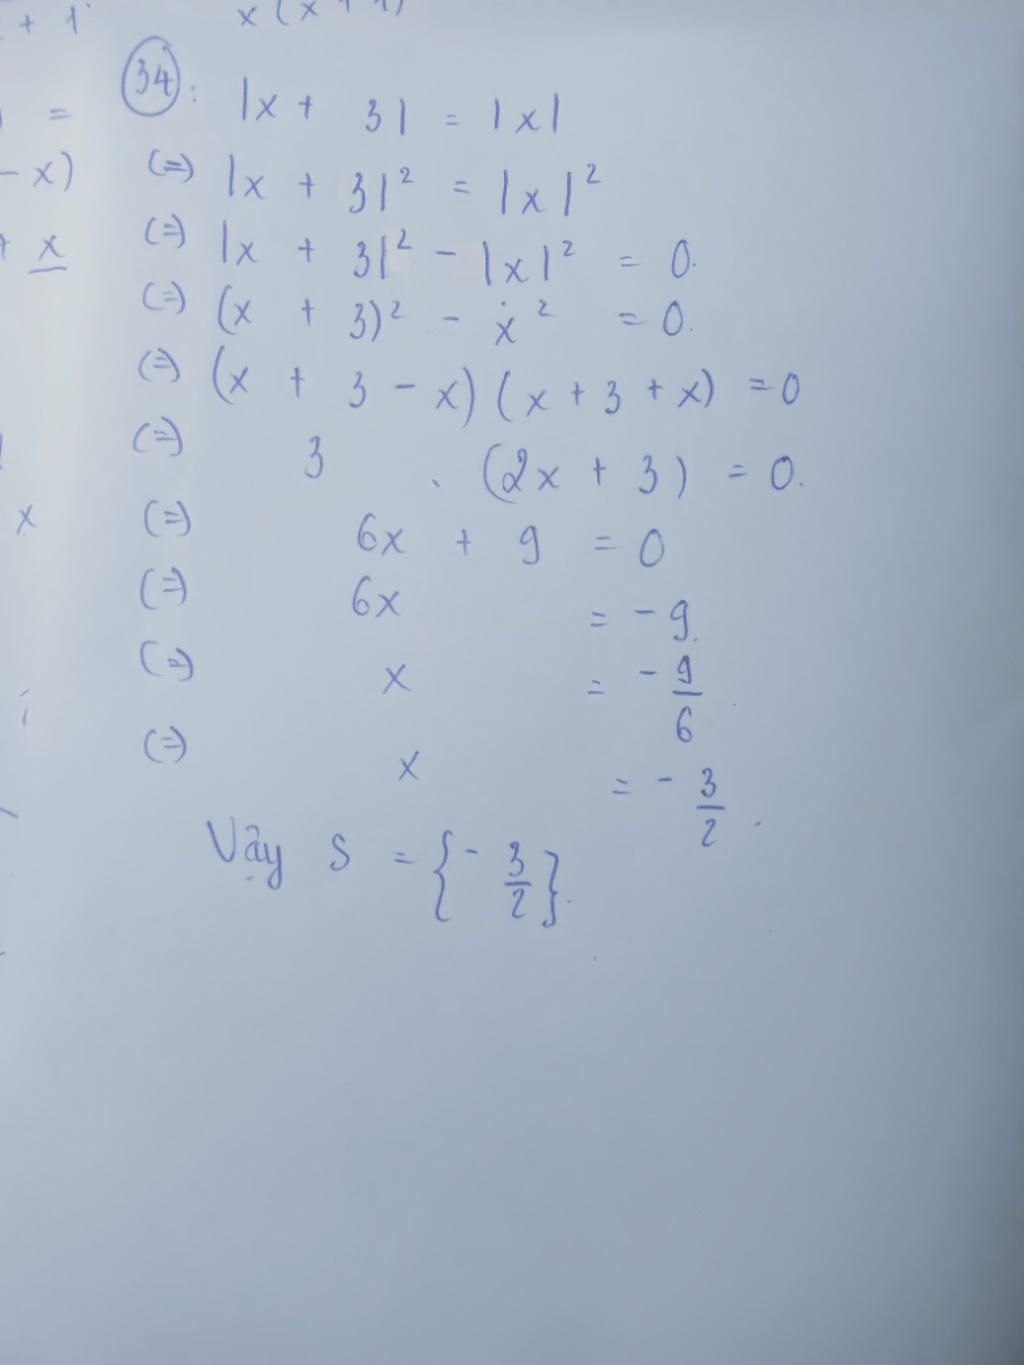 + 1
x(x+1)
=
- x)
+ x
x
34: |x + 3| = |x|
(=) |x + 3|² = |x|²
(=) |x + 3|² - |x|² = 0.
(=) (x + 3)² - x² = 0.
(=) (x + 3 - x)(x + 3 + x) = 0
(=) 3 . (2x + 3) = 0.
(=) 6x + 9 = 0
(=) 6x = -9.
(=) x = -9/6
(=) x = -3/2.
Vậy S = {-3/2}.